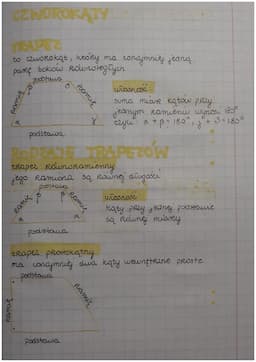 CZWOROKĄTY
TRAPEZ
to czworokąt, który ma conajmniej jedną
parę boków równoległych.
podstawa
ramię
ramię
podstawa
własność
suma miar kątów przy
jednym ramieniu wynosi 180°
czyli α + β = 180°, γ + δ = 180°
RODZAJE TRAPEZÓW
trapez równoramienny
jego ramiona są równej długości
podstawa
ramię
ramię
podstawa
własność
kąty przy jednej podstawie
są równej miary
trapez prostokątny
ma conajmniej dwa kąty wewnętrzne proste
podstawa
ramię
ramię
podstawa